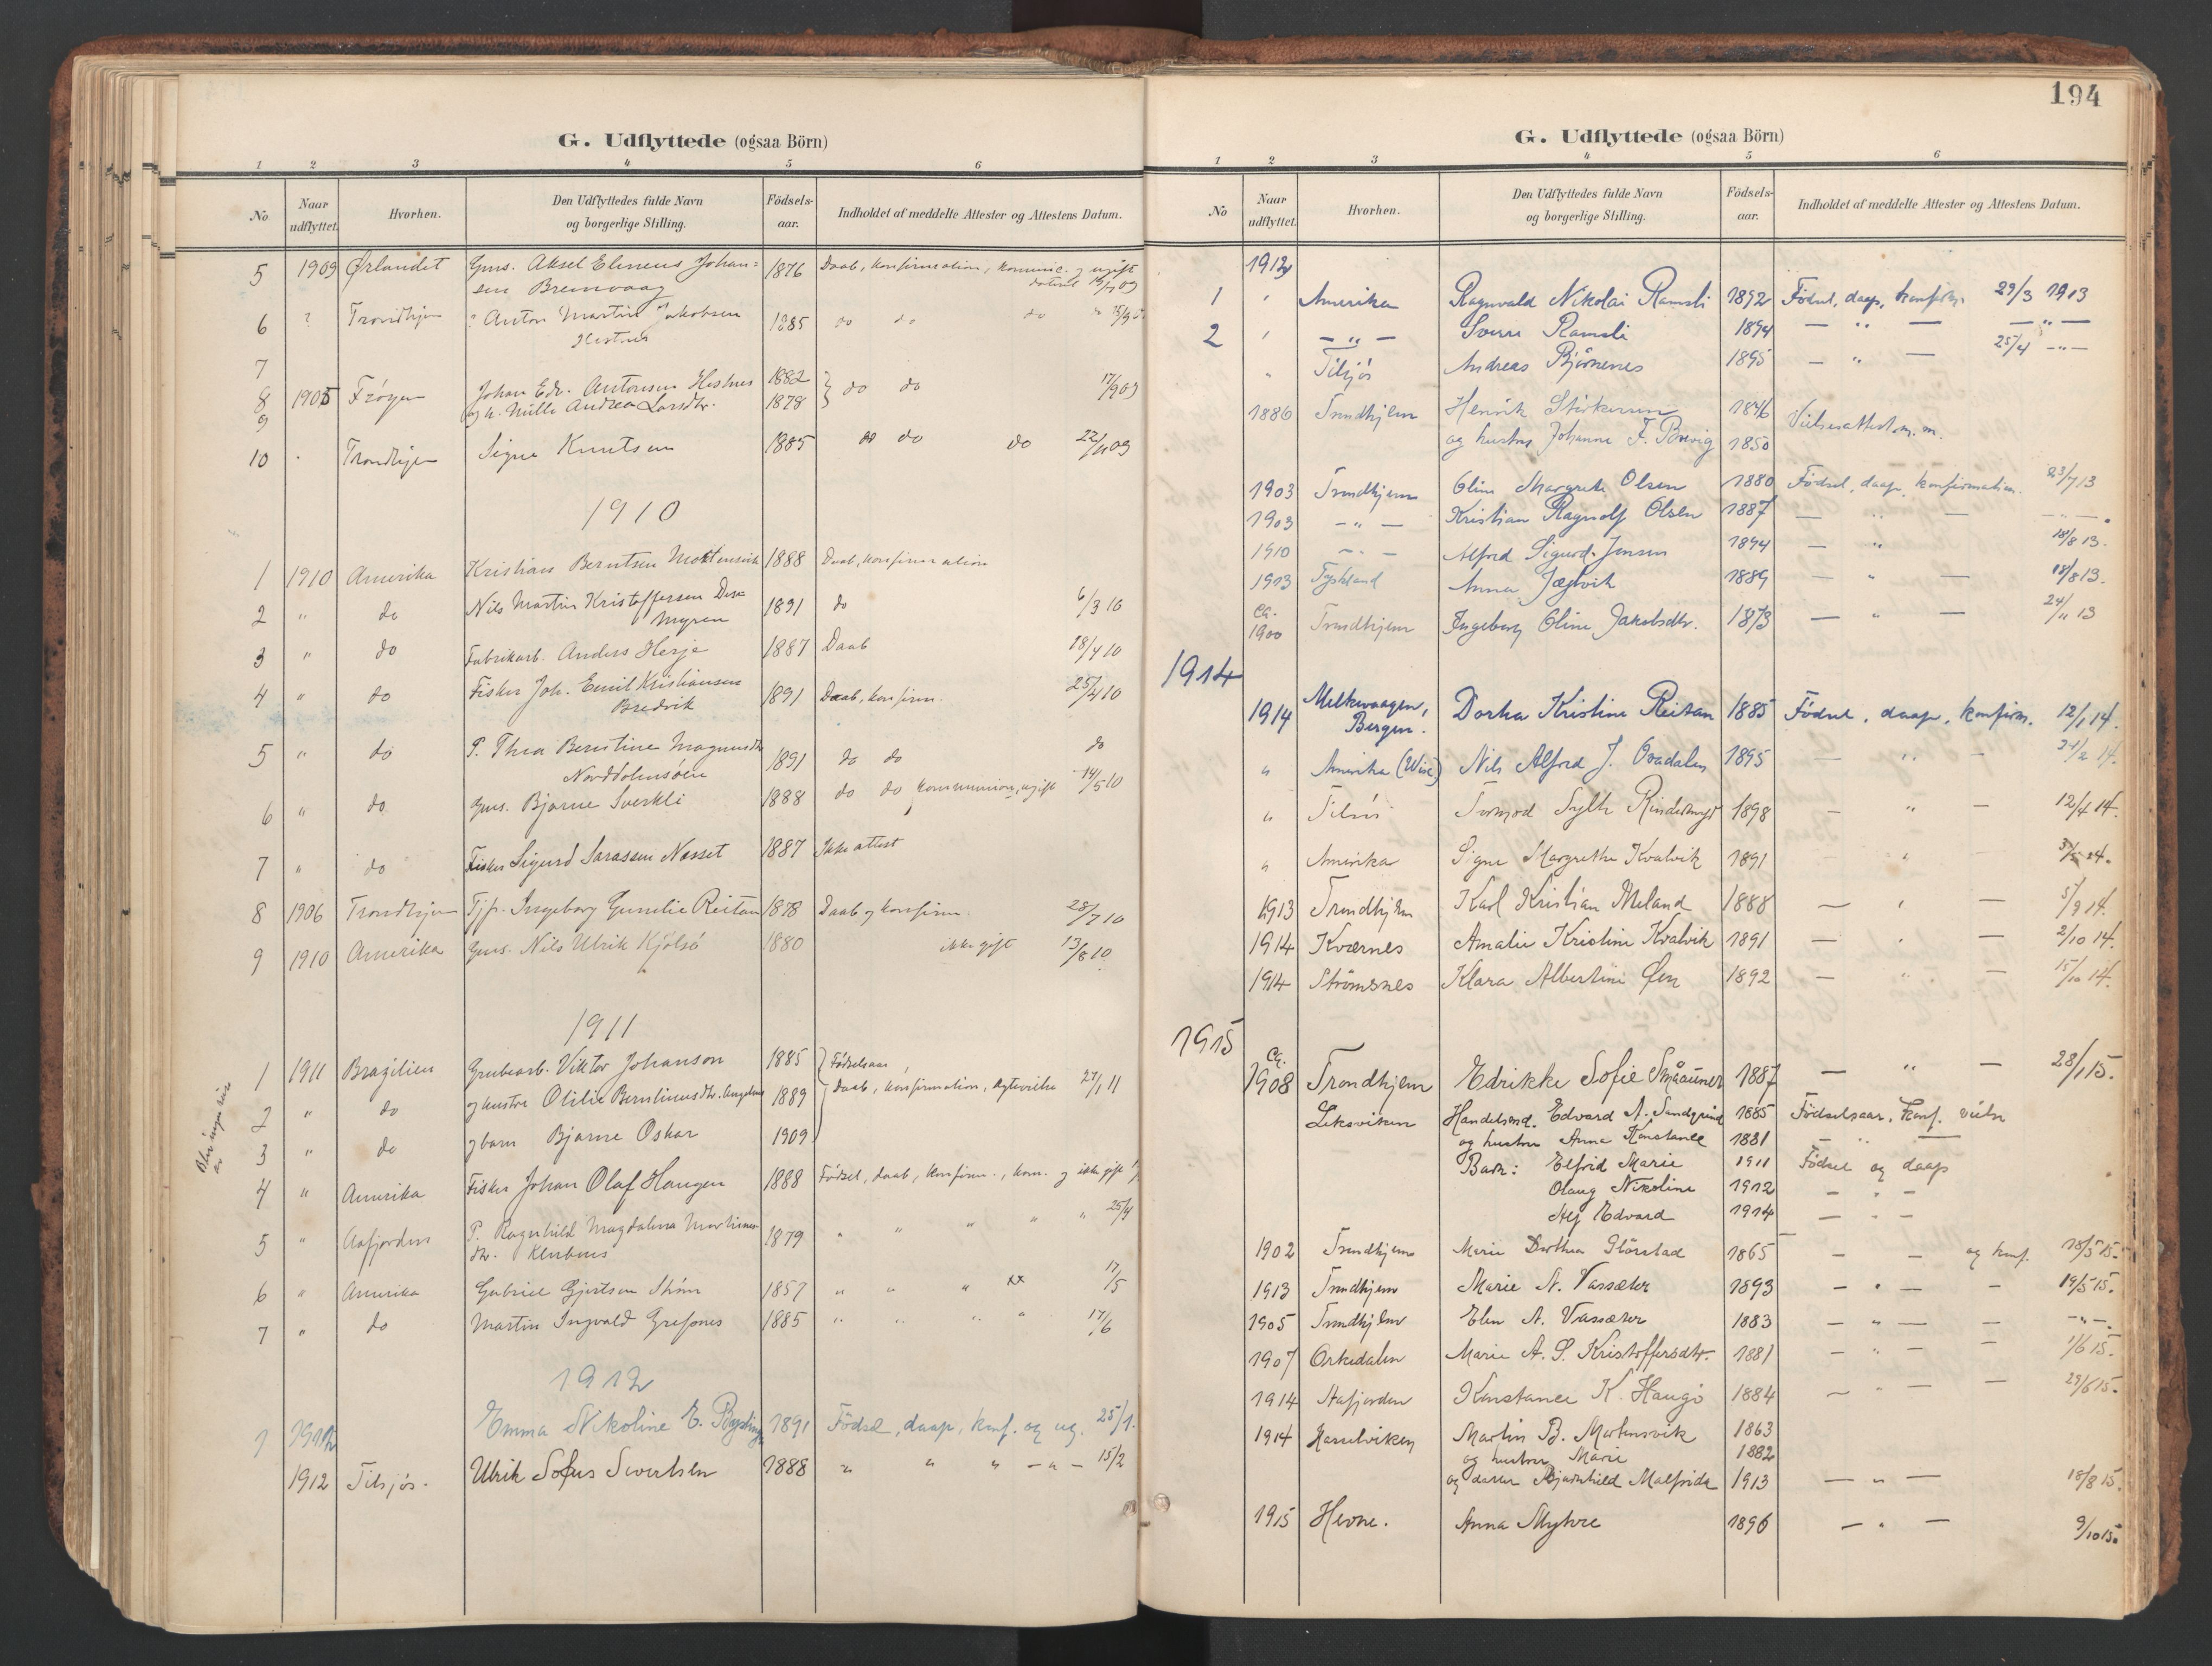 G. Udflyttede (ogsaa Börn)
1 2 3 4 5 6
No Naar udflyttet. Hvorhen. Den Udflyttedes fulde Navn og borgerlige Stilling. Födsels-aar. Indholdet af meddelte Attester og Attestens Datum.
5 1909 Ørlandet Gms. Aksel Elineus Johan- 1876 Daab, konfirmation, kommunic. og ugift
sen Bremvaag
6 ? Trondhjem ? Anton Martin Jakobsen 1885 do do do
Hestnes
7
8 1905 Frøyen Johan Edv. Antonsen Hestnes 1882 do do 17/9 09
9 og h. Mille Andrea Larsdtr. 1878
10 Trondhjem Signe Knutsen 1885 do do do 22/11 09
1910
1 1910 Amerika Kristian Berntsen Mortensvik 1888 Daab, konfirmation
2 " do Nils Martin Kristoffersen 1891 do 6/3 10
myren
3 " do Fabrikarb. Anders Herje 1887 Daab 18/4 10
4 " do Fisker Joh. Emil Kristiansen 1891 Daab, konfirm. 25/4 10
Bredvik
5 " do P. Thea Berntine Magnusdtr 1891 do do do
Norddolmsøen
6 " do Gms. Bjarne Sverkli 1888 do do kommunion, ugift 14/5 10
7 " do Fisker Sigurd Larassen Nesset 1887 Ikke attest
8 1906 Trondhjem Tjp. Ingeborg Gunelie Reitan 1878 Daab og konfirm. 28/7 10
9 1910 Amerika Gms. Nils Ulrik Kjölsö 1880 ikke gift 13/8 10
1911
1 1911 Brazilien Grubearb. Viktor Johanson 1885 Födselsaar,
2 " do og hustru Otilie Bernlinusdtr. 1889 Daab, konfirmation, ægtevielse 27/1 11
3 " do og barn Bjarne Oskar 1909
Blev ingen reise av
4 " Amerika Fisker Johan Olaf Haugen 1888 Födsel, daab, konfirm., kom. og ikke gift
5 " Aafjorden P. Ragnhild Magdalena Martinus- 1879 " " " " " 25/4
dtr.
6 " Amerika Gabriel Gjertsen 1857 " " " xx 17/5
7 " do Martin Ingvald Grefsnes 1885 " " " " 17/6
1912
1 1912 Emma Nikoline E. 1891 Födsel, daap, konf. og ug. 25/1.
1912 Titsjös. Ulrik Sofus Sivertsen 1888 " " " - " - 15/2
194
G. Udflyttede (ogsaa Börn)
1 2 3 4 5 6
No Naar udflyttet. Hvorhen. Den Udflyttedes fulde Navn og borgerlige Stilling. Födsels-aar. Indholdet af meddelte Attester og Attestens Datum.
1 ' Amerika Ragnvald Nikolai Ramsli 1892 Födsel, daap, konfirm. 29/3 1913
2 ' - " - Sverre Ramsli 1894 - " - - " -
" Titsjös Andreas Bjørnenes 1895 - " - 25/4 - " -
1886 Trondhjem Henrik Størkersen 1846 Vielsesattest m.m.
og hustru Johanne F. Brevig 1850
1903 Trondhjem Oline Margrete Olsen 1880 Födsel, daap, konfirmation. 23/7 13
1903 - " - Kristian Ragnolf Olsen 1887 - " - - " -
1910 - " - Alfred Sigurd Jensen 1894 - " 18/8 13.
1913 Tyskland Anna Jægtvik 1889 - " - 18/8 13.
ca. 1900 Trondhjem Ingeborg Oline Jakobsdtr. 1873 - " - 24/11 13
1914
1914 Melkevaagen, Bergen. Dorthea Kristine Reitan 1885 Födsel, daap, konfirm. 12/1 14.
" Amerika (Wisc) Nils Alfred J. Ovedalen 1895 - " - 21/2 14.
" Titsös Tormod Sylte 1898 - " - 12/4 14.
" Amerika Signe Margrethe Kvalvik 1891 - " 3/5 14.
1913 Trondhjem Karl Kristian Meland 1888 - ' - 5/9 14.
1914 Kværnes Amalie Kristine Kvalvik 1891 - ' - 2/10 14.
1914 Strömsnes Klara Albertine Øen 1892 - " - 15/10 14.
1915
ca. 1908 Trondhjem Edrikke Sofie Småunet 1887 - " - 28/1 15.
Leksviken Handelsmd. Edvard A. Sandgrind 1885 Födselsaar, konf. vielse
og hustru Anna Konstance 1881 - " -
Barn: Elfrid Marie 1911 Födsel og daap
Olaug Nikoline 1912 - " -
Alf Edvard 1914 - " -
1902 Trondhjem Marie Dorthea Glörstad 1865 - - og konf. 18/5 15.
1913 Trondhjem Marie N. Vassæter 1893 - " - - 19/5 15.
1905 Trondhjem Elen A. Vassæter 1883 - " - - - " -
1907 Orkedalen Marie A. S. Kristoffersdtr. 1881 - " - - 1/6 15.
1914 Aafjorden Konstance K. Haugö 1884 - " - - 29/6 15.
1914 Hasselviken Martin B. Mortensvik 1863
og hustru Marie 1882
og datter Bjarnhild Malfride 1913 - " - 18/8 15.
1915 Hevne. Anna Myhre 1896 - " - 9/10 15.